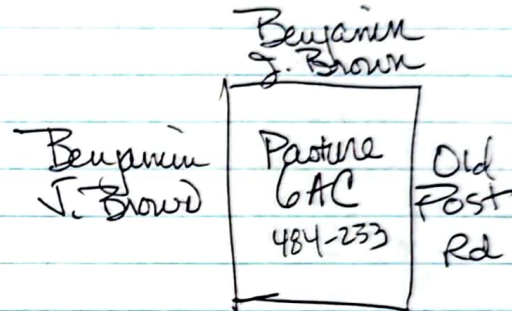 Benjamin
J. Brown
Benjamin
J. Brown
Pasture
6AC
484-233
Old
Post
Rd